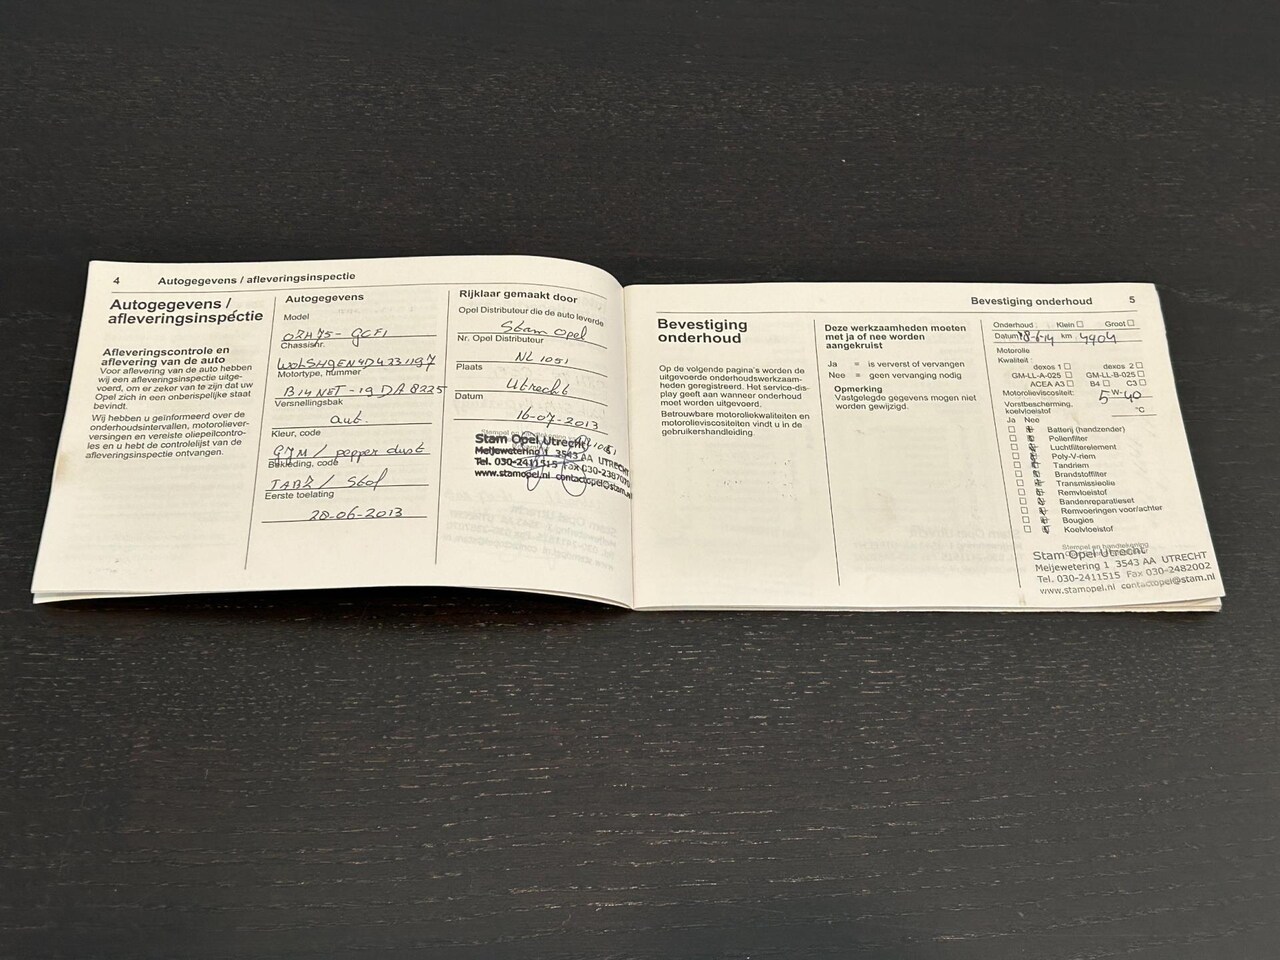 4 Autogegevens / afleveringsinspectie
Autogegevens /
afleveringsinspectie
Afleveringscontrole en
aflevering van de auto
Voor aflevering van de auto hebben
wij een afleveringsinspectie uitge-
voerd, om er zeker van te zijn dat uw
Opel zich in een onberispelijke staat
bevindt.
Wij hebben u geïnformeerd over de
onderhoudsintervallen, motoroliever-
versingen en vereiste oliepeilcontro-
les en u hebt de controlelijst van de
afleveringsinspectie ontvangen.
Autogegevens
Model
Chassisnr.
Motortype, nummer
B14NET-19DA8225
Versnellingsbak
aut.
Kleur, code
GYM / pepper dust
Bekleding, code
Stof
Eerste toelating
28-06-2013
Rijklaar gemaakt door
Opel Distributeur die de auto leverde
Stam Opel
Nr. Opel Distributeur
NL 1051
Plaats
Utrecht
Datum
16-07-2013
Stam Opel Utrecht
Meijewetering 1 3543 AA UTRECHT
Tel. 030-2411515 Fax 030-2387070
www.stamopel.nl contactopel@stam.nl
Bevestiging onderhoud 5
Bevestiging
onderhoud
Op de volgende pagina's worden de
uitgevoerde onderhoudswerkzaam-
heden geregistreerd. Het service-dis-
play geeft aan wanneer onderhoud
moet worden uitgevoerd.
Betrouwbare motoroliekwaliteiten en
motorolieviscositeiten vindt u in de
gebruikershandleiding.
Deze werkzaamheden moeten
met ja of nee worden
aangekruist
Ja = is ververst of vervangen
Nee = geen vervanging nodig
Opmerking
Vastgelegde gegevens mogen niet
worden gewijzigd.
Onderhoud : Klein Groot
Datum -6-14 km 4904
Motorolie
Kwaliteit :
dexos 1 dexos 2
GM-LL-A-025 GM-LL-B-025
ACEA A3 B4 C3
Motorolieviscositeit: 5 W- 40
Vorstbescherming,
koelvloeistof °C
Ja Nee
Batterij (handzender)
Pollenfilter
Luchtfilterelement
Poly-V-riem
Tandriem
Brandstoffilter
Transmissieolie
Remvloeistof
Bandenreparatieset
Remvoeringen voor/achter
Bougies
Koelvloeistof
Stempel en handtekening
Stam Opel Utrecht
Meijewetering 1 3543 AA UTRECHT
Tel. 030-2411515 Fax 030-2482002
www.stamopel.nl contactopel@stam.nl